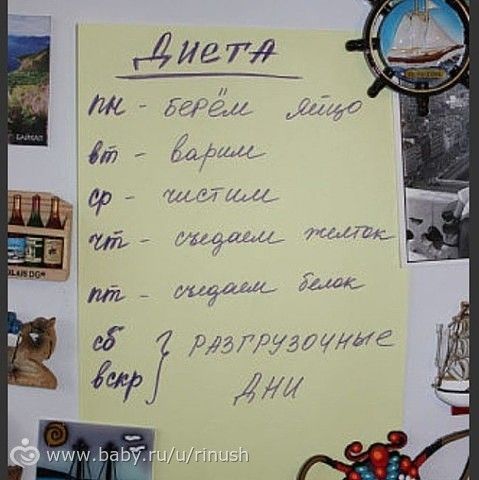 ДИЕТА
пн - берём яйцо
вт - варим
ср - чистим
чт - съедаем желток
пт - съедаем белок
сб
вскр } РАЗГРУЗОЧНЫЕ
ДНИ
БАЙКАЛ
www.baby.ru/u/rinush